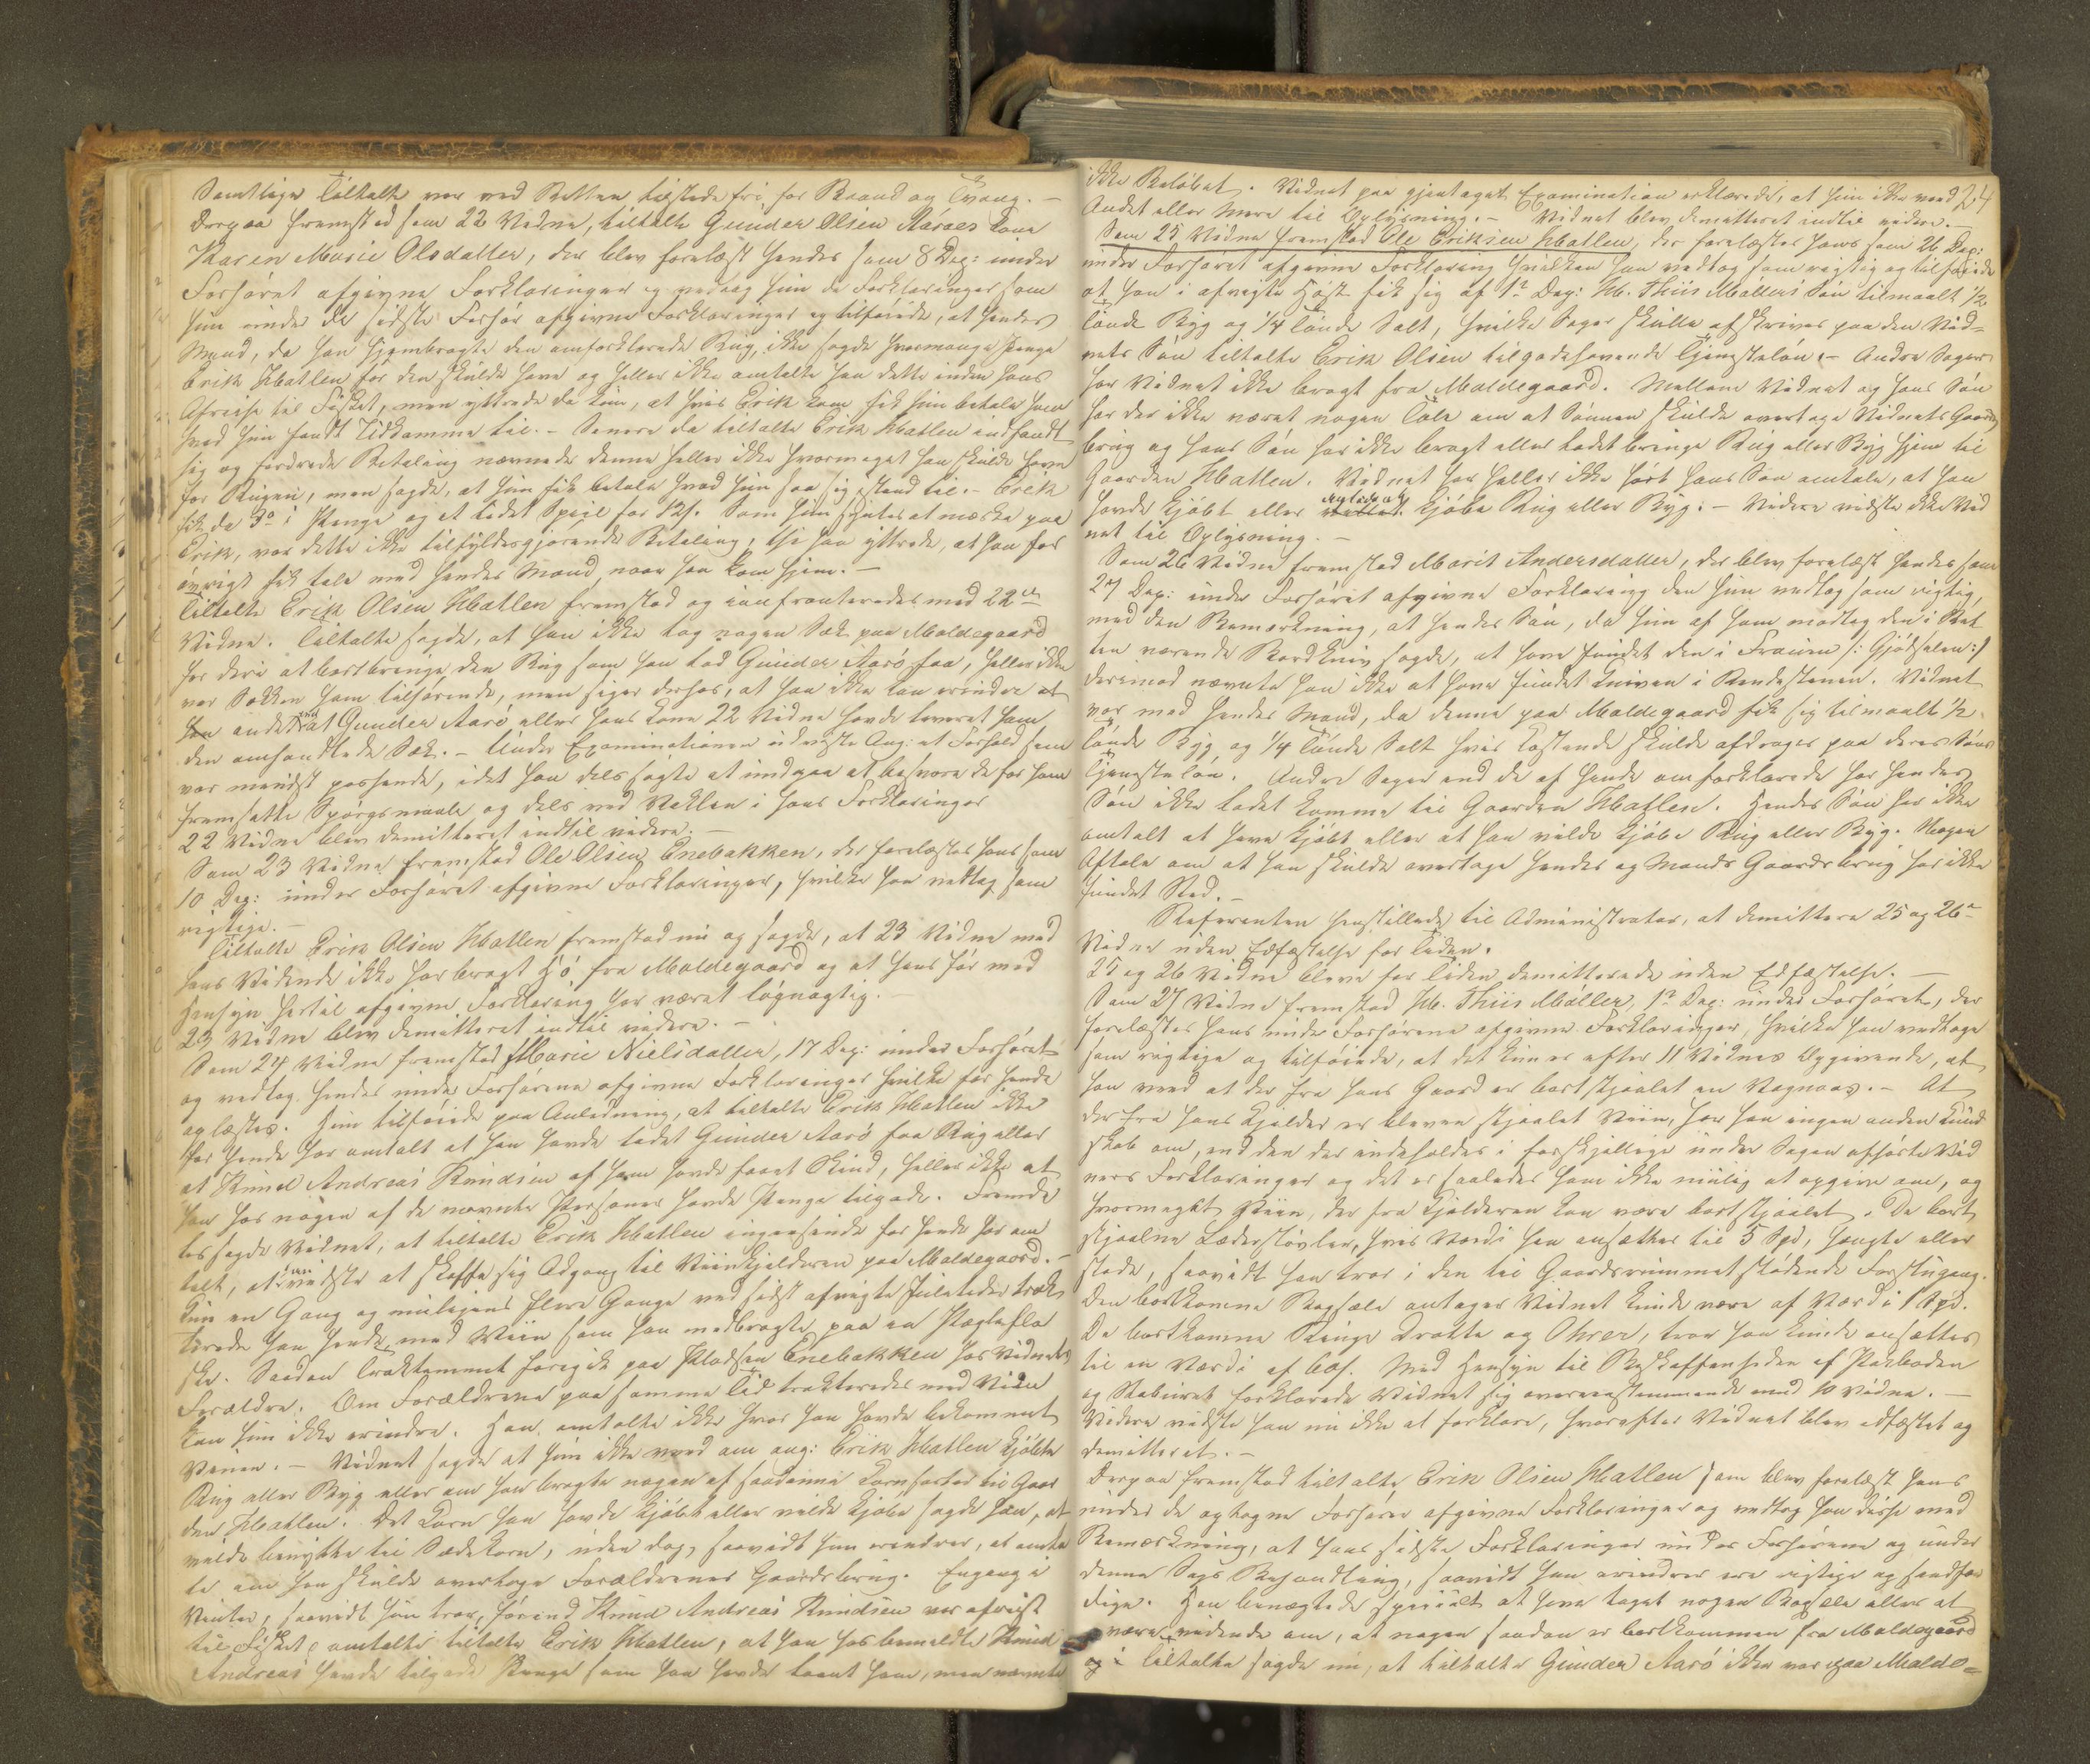 Samtlige Tiltalte var ved Retten tilstede fri for Baand og Tvang. –
Derpaa fremstod som 22 Vidne, tiltalte Gunder Olsen Aaraes Kone
Karen Marie Olsdatter, der blev forelæst hendes som 8 Dep: under
Forhøret afgivne Forklaringer og vedtog hun de Forklaringer som
hun under de sidste Forhør afgivne Forklaringer og tilføiede, at hendes
Mand, da han hjembragte den omforklarede Rug, ikke sagde hvormange Penge
Erik Hatlen for den skulde have og heller ikke omtalte han dette inden hans
Afreise til Fisket, men yttrede da kun, at hvis Erik kom fik hun betale ham
hvad hun fandt Udkomme til. – Senere da tiltalte Erik Hatlen indfandt
sig og fordrede Betaling nævnede denne heller ikke hvormeget han skulde have
for Rugen, men sagde, at hun fik betale hvad hun saa sig istand til. – Erik
fik da 3 i Penge og et lidet Speil for 12 s. Som hun syntes at mærke paa
Erik, var dette ikke tilfyldesgjørende Betaling, thi han yttrede, at han for
øvrigt fik tale med hendes Mand naar han kom hjem. –
Tiltalte Erik Olsen Hatlen fremstod og confronteredes med 22de
Vidne. Tiltalte sagde, at han ikke tog nogen Sæk paa Moldegaard
for deri at bortbringe den Rug som han lod Gunder Aarø faa, heller ikke
var Sækken ham tilhørende, men siger derhos, at han ikke kan erindre at
han andet end at Gunder Aarø eller hans Kone 22 Vidne havde leveret ham
den omhandlede Sæk. – Under Examinationen udviste Ang: et Forhold som
var mindst passende, idet han dels søgte at undgaa at besvare de for ham
fremsatte Spørgsmaale og dels ved Vaklen i hans Forklaringer
22 Vidne blev demitteret indtil videre. –
Som 23 Vidne fremstod Ole Olsen Enebakken, der forelæstes hans som
10 Dep: under Forhøret afgivne Forklaringer, hvilke han vedtog som
rigtige. –
Tiltalte Erik Olsen Hatlen fremstod nu og sagde, at 23 Vidne med
hans Vidende ikke har bragt Hø fra Moldegaard og at hans før med
Hensyn hertil afgivne Forklaring har været løgnagtig. –
23 Vidne blev demitteret indtil videre. –
Som 24 Vidne fremstod Marie Nielsdatter, 17 Dep: under Forhøret
og vedtog hendes under Forhørene afgivne Forklaringer hvilke for hende
oplæstes. Hun tilføiede paa Anledning, at tiltalte Erik Hatlen ikke
for hende har omtalt at han havde ladet Gunder Aarø faa Rug eller
at Knud Andreas Knudsen af ham havde faaet Skind, heller ikke at
han hos nogen af de nævnte Personer havde Penge tilgode. Fremde
les sagde Vidnet, at tiltalte Erik Hatlen ingensinde for hende har om
talt, at han vidste at skaffe sig Adgang til Viinkjelderen paa Moldegaard. –
Kun en Gang og muligens flere Gange ved sidst afvigte Juletider trak
terede han hende med Viin som han medbragte paa en Pægleflas
ke. Saadan Traktement foregik paa Pladsen Enebakken hos Vidnets
Forældre. Om Forældrene paa samme Tid trakteredes med Viin
kan hun ikke erindre. Han omtalte ikke hvor han havde bekommet
Vinen. – Vidnet sagde at hun ikke veed om ang: Erik Hatlen kjøbte
Rug eller Byg eller om han bragte nogen af saadanne Kornsorter til Gaar
den Hatlen. Det Korn han havde kjøbt eller vilde kjøbe sagde han, at
vilde benytte til Sædekorn, uden dog, saavidt hun erindrer, at omta
le om han skulde overtage Forældrenes Gaardsbrug. Engang i
Vinter, saavidt hun tror, førend Knud Andreas Knudsen var afreist
til Fisket omtalte tiltalte Erik Hatlen, at han hos bemeldte Knud
Andreas havde tilgode Penge som han havde laant ham, men nævnte
24
ikke Beløbet. Vidnet paa gjentaget Examination erklærede, at hun ikke veed
Andet eller Mere til Oplysning. – Vidnet blev demitteret indtil videre. –
Som 25 Vidne fremstod Ole Eriksen Hatlen, der forelæstes hans som 26 Dep:
under Forhøret afgivne Forklaring hvilken han vedtog som rigtig og tilføiede
at han i afvigte Høst fik sig af 1ste Dep: H. Thiis Møllers Søn tilmaalt 1/2
Tønde Byg og 1/4 Tønde Salt, hvilke Sager skulle afskrives paa den Vid=
nets Søn tiltalte Erik Olsen tilgodehavende Tjenesteløn. – Andre Sager
har Vidnet ikke bragt fra Moldegaard. Mellem Vidnet og hans Søn
har der ikke været nogen Tale om at Sønnen skulde overtage Vidnets Gaards
brug og hans Søn har ikke bragt eller ladet bringe Rug eller Byg hjem til
Gaarden Hatlen. Vidnet har heller ikke hørt hans Søn omtale, at han
havde kjøbt eller kjøbe Rug eller Byg. – Videre vidste ikke Vid
net til Oplysning. –
Som 26 Vidne fremstod Marit Andersdatter, der blev forelæst hendes som
27 Dep: under Forhøret afgivne Forklaring den hun vedtog som rigtig,
med den Bemærkning, at hendes Søn, da hun af ham modtog den i Ret
ten værende Bordkniv sagde, at have fundet den i Frauen /: Gjødselen :/
derimod nævnte han ikke at have fundet Kniven i Rendestenen. Vidnet
var med hendes Mand, da denne paa Moldegaard fik sig tilmaalt 1/2
Tønde Byg og 1/4 Tønde Salt hvis Kostende skulde afdrages paa deres Søns
Tjenesteløn. Andre Sager end de af hende omforklarede har hendes
Søn ikke ladet komme til Gaarden Hatlen. Hendes Søn har ikke
omtalt at have kjøbt eller at han vilde kjøbe Rug eller Byg. Nogen
Aftale om at han skulde overtage hendes og Mands Gaardsbrug har ikke
fundet Sted. –
Referenten henstillede til Administrator, at demittere 25 og 26de
Vidner uden Edfæstelse for Tiden.
25 og 26 Vidne bleve for Tiden demitterede uden Edfæstelse. –
Som 27 Vidne fremstod H. Thiis Møller, 1ste Dep: under Forhøret, der
forelæstes hans under Forhørene afgivne Forklaringer, hvilke han vedtoge
som rigtige og tilføiede, at det kun er efter 11 Vidnes Opgivende, at
han veed at der fra hans Gaard er bortstjaalet en Vognaas. – At
der fra hans Kjelder er bleven stjaalet Viin, har han ingen anden Kund
skab om, end den der indeholdes i forskjellige under Sagen afhørte Vid
ners Forklaringer og det er saaledes ham ikke mulig at opgive om, og
hvormeget Viin, der fra Kjelderen kan være bortstjaalet. De bort
stjaalne Læderstøvler, hvis Værdi han ansætter til 5 Spd, hængte eller
stode, saavidt han tror i den til Gaardsrummet stødende Forstugang.
Den bortkomne Bogsæle antager Vidnet kunde være af Værdi 1 Spd.
De bortkomne Ringe Dratte og Ohrer, tror han kunde ansættes
til en Værdi af 60 s. Med Hensyn til Beskaffenheden af Pakboden
og Staburet forklarede Vidnet sig overeensstemmende med 10 Vidne. –
Videre vidste han nu ikke at forklare, hvorefter Vidnet blev edfæstet og
demitteret. –
Derpaa fremstod tiltalte Erik Olsen Hatlen som blev forelæst hans
under de optagne Forhører afgivne Forklaringer og vedtog han disse med
Bemærkning, at hans sidste Forklaringer under Forhørene og under
denne Sags Behandling, saavidt han erindrer ere rigtige og sandfær
dige. Han benægtede specielt at have taget nogen Bogsele eller at
være vidende om, at nogen saadan er bortkommen fra Moldegaard
og Tiltalte sagde nu, at tiltalte Gunder Aarø ikke var paa Molde=